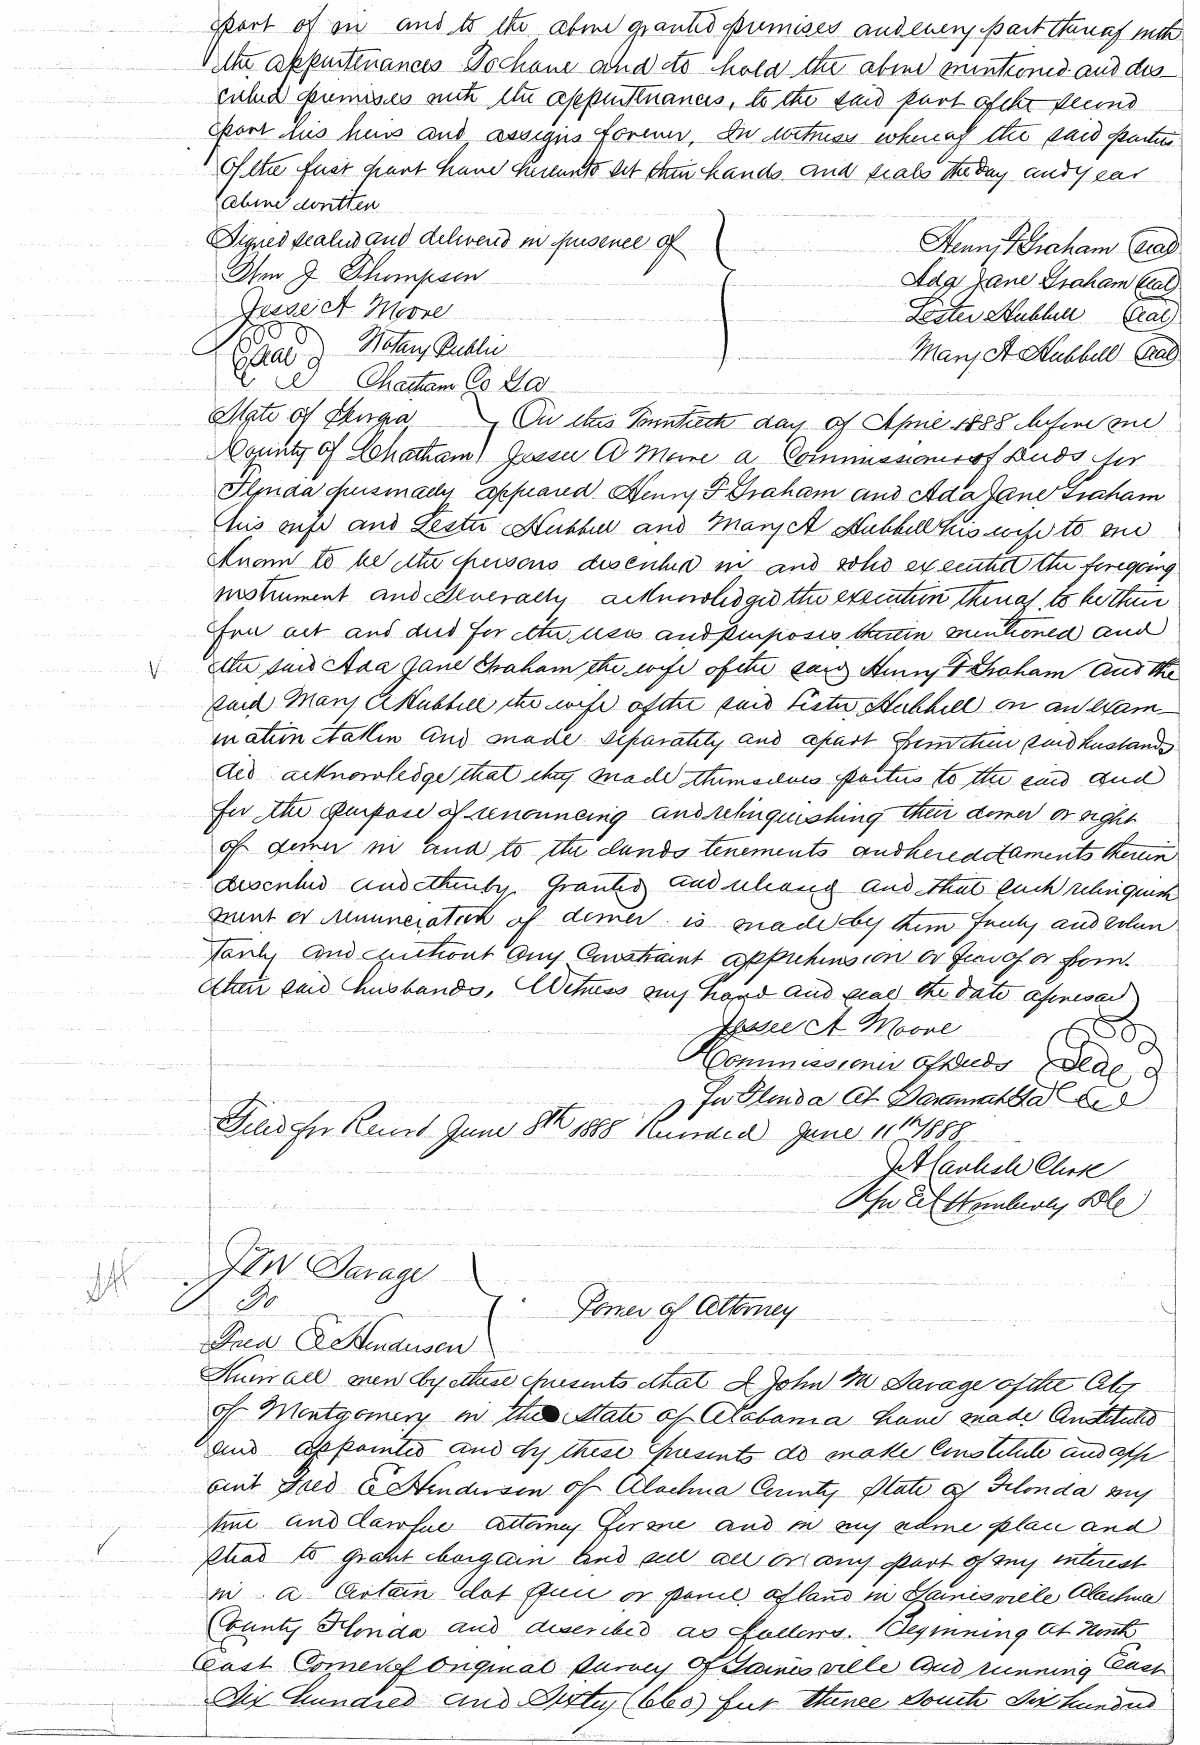 part of in and to the above granted premises and every part thereof with
the appurtenances To have and to hold the above mentioned and des
cribed premises with the appurtenances, to the said part of the second
part his heirs and assigns forever, In witness whereof the said parties
of the first part have hereunto set their hands and seals the day and year
above written
Signed sealed and delivered in presence of
Henry F Graham (Seal)
Wm J Thompson
Ada Jane Graham (Seal)
Jesse A Moore
Lester Hubbell (Seal)
(Seal) Notary Public
Mary A Hubbell (Seal)
Chatham Co Ga
State of Georgia On this Twentieth day of April 1888 before me
County of Chatham Jesse A Moore a Commissioner of Deeds for
Florida personally appeared Henry F Graham and Ada Jane Graham
his wife and Lester Hubbell and Mary A Hubbell his wife to me
known to be the persons described in and who executed the foregoing
instrument and severally acknowledged the execution thereof to be their
free act and deed for the uses and purposes therein mentioned and
the said Ada Jane Graham the wife of the said Henry F Graham and the
said Mary A Hubbell the wife of the said Lester Hubbell on an exam
ination taken and made separately and apart from their said husbands
did acknowledge that they made themselves parties to the said deed
for the purpose of renouncing and relinquishing their dower or right
of dower in and to the lands tenements and hereditaments therein
described and thereby granted and released and that such relinquish
ment or renunciation of dower is made by them freely and volun
tarily and without any constraint apprehension or fear of or from
their said husbands. Witness my hand and seal the date aforesaid
Jesse A Moore
Commissioner of Deeds (Seal)
for Florida at Savannah Ga
Filed for Record June 8th 1888 Recorded June 11th 1888
J A Carlisle Clerk
Per
J W Savage
To Power of Attorney
Fred E Henderson
Know all men by these presents that I John M Savage of the City
of Montgomery in the State of Alabama have made constituted
and appointed and by these presents do make constitute and app
oint Fred E Henderson of Alachua County State of Florida my
true and lawful attorney for me and in my name place and
stead to grant bargain and sell all or any part of my interest
in a certain lot piece or parcel of land in Gainesville Alachua
County Florida and described as follows. Beginning at North
East Corner of original survey of Gainesville and running East
Six hundred and Sixty (660) feet thence South Six hundred